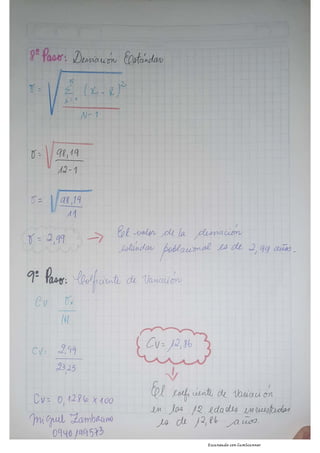 8º Paso: Desviación Estándar
σ = √ N Σ i=1 (xi - x̄)²
N-1
σ = √ 98,19
12-1
σ = √ 98,19
11
σ = 2,99 → El valor de la desviación
estándar poblacional es de 2,99 años.
9º Paso: Coeficiente de Variación
CV σx
|x̄|
CV = 2,99
23,25
CV = 12,86
CV = 0,1286 x 100
El coeficiente de variación
en las 12 edades encuestadas
es de 12,86 años
Miguel Zambrano
0940199573
Escaneado con CamScanner